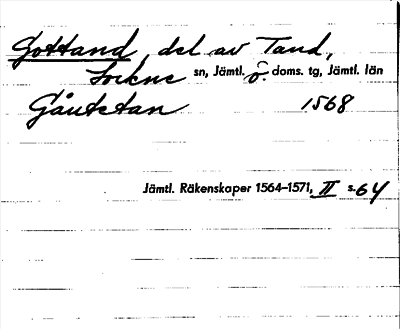 Gottand, del av Tand,
Lockne sn, Jämtl. ö. doms. tg, Jämtl. län
Gåutetan 1568
Jämtl. Räkenskaper 1564–1571, II s. 64